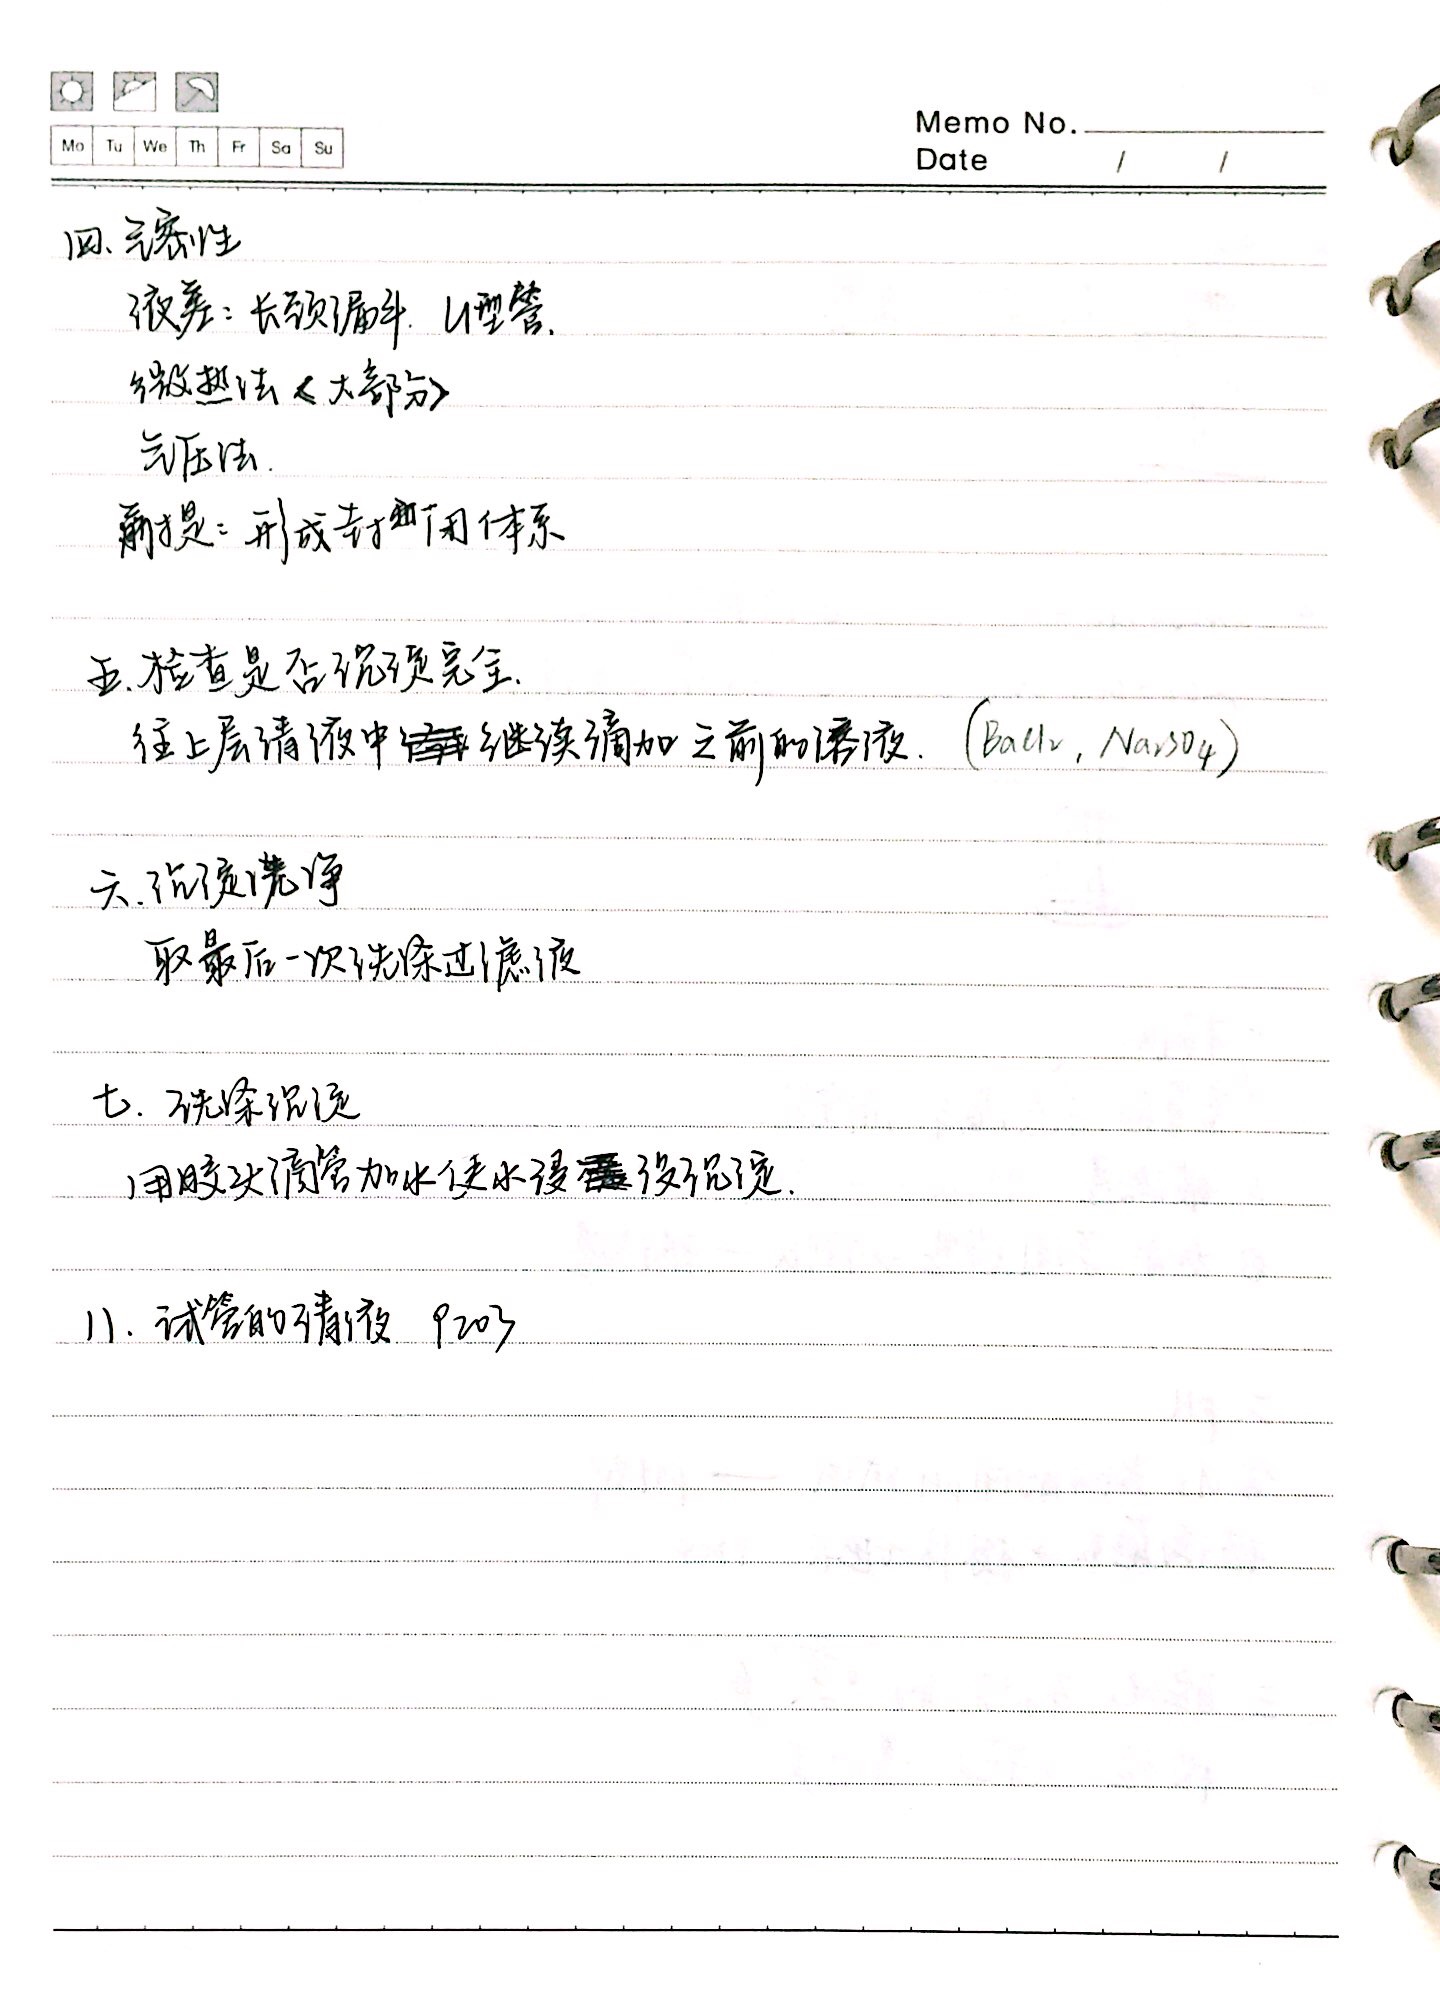 Mo Tu We Th Fr Sa Su
Memo No.
Date / /
四、气密性
液差：长颈漏斗. U型管.
微热法<大部分>
气压法.
前提：形成封闭体系
五.检查是否沉淀完全.
往上层清液中继续滴加之前的溶液. (BaCl2, Na2SO4)
六.沉淀洗净
取最后一次洗涤过滤液
七. 洗涤沉淀
用胶头滴管加水使水浸没沉淀.
八. 试管的清液 P203